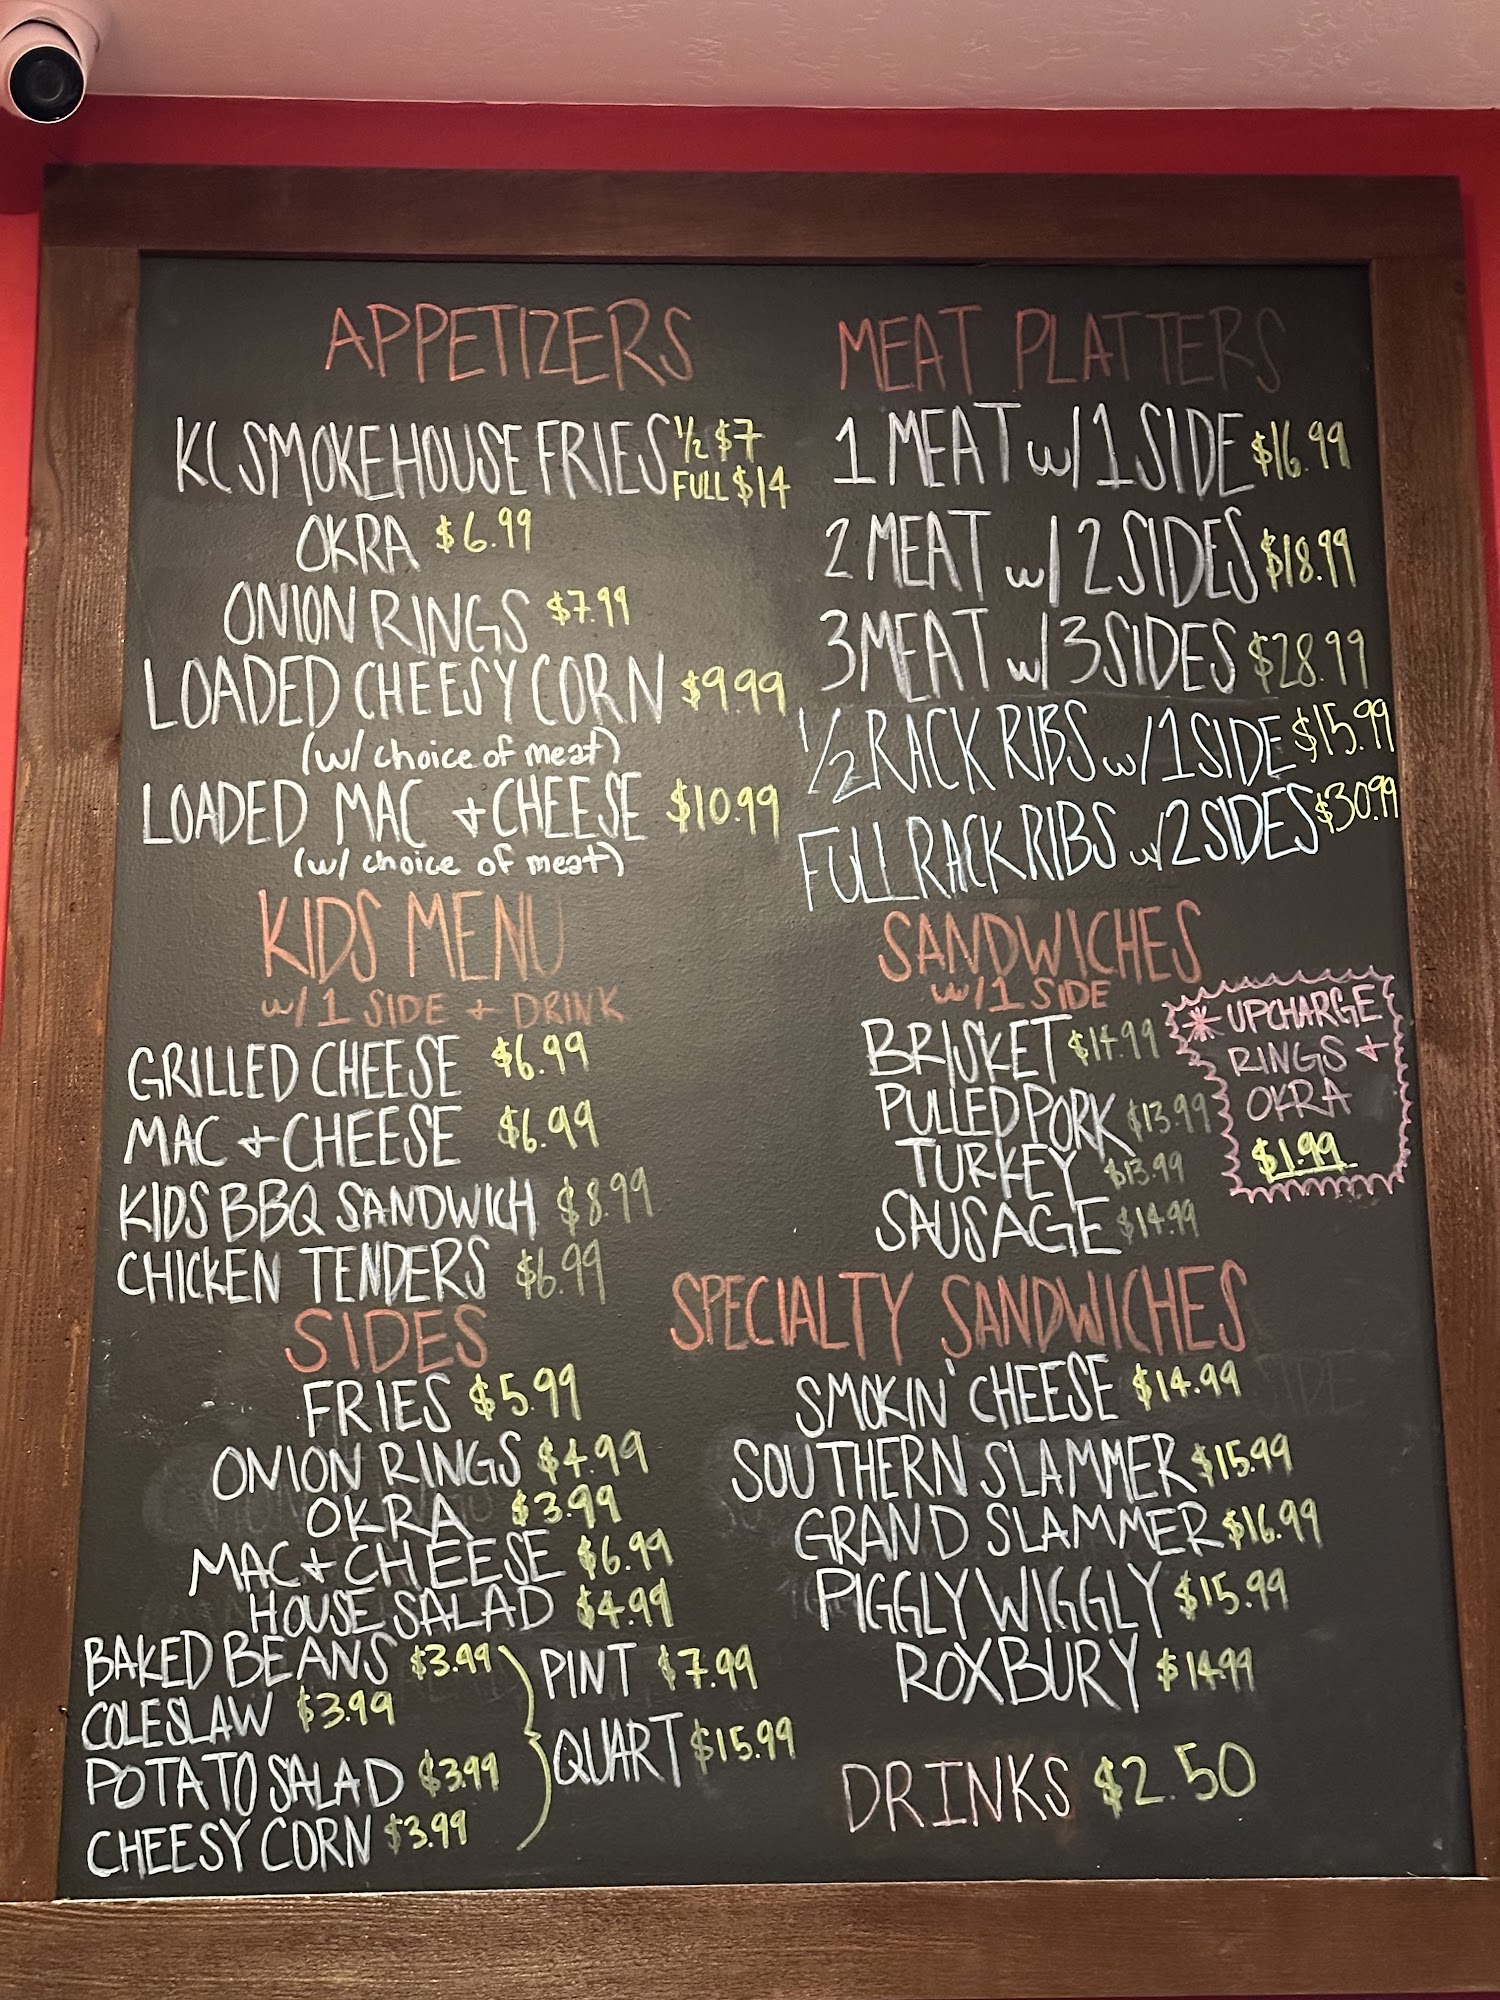 APPETIZERS
KC SMOKEHOUSE FRIES 1/2 $7
FULL $14
OKRA $6.99
ONION RINGS $7.99
LOADED CHEESY CORN $9.99
(w/ choice of meat)
LOADED MAC + CHEESE $10.99
(w/ choice of meat)
KIDS MENU
w/ 1 SIDE + DRINK
GRILLED CHEESE $6.99
MAC + CHEESE $6.99
KIDS BBQ SANDWICH $8.99
CHICKEN TENDERS $6.99
SIDES
FRIES $5.99
ONION RINGS $4.99
OKRA $3.99
MAC + CHEESE $6.99
HOUSE SALAD $4.99
BAKED BEANS $3.99
COLESLAW $3.99
POTATO SALAD $3.99
CHEESY CORN $3.99
PINT $7.99
QUART $15.99
MEAT PLATTERS
1 MEAT w/ 1 SIDE $16.99
2 MEAT w/ 2 SIDES $18.99
3 MEAT w/ 3 SIDES $28.99
1/2 RACK RIBS w/ 1 SIDE $15.99
FULL RACK RIBS w/ 2 SIDES $30.99
SANDWICHES
w/ 1 SIDE
BRISKET $14.99
PULLED PORK $13.99
TURKEY $13.99
SAUSAGE $14.99
* UPCHARGE
RINGS +
OKRA
$1.99
SPECIALTY SANDWICHES
SMOKIN' CHEESE $14.99
SOUTHERN SLAMMER $15.99
GRAND SLAMMER $16.99
PIGGLY WIGGLY $15.99
ROXBURY $14.99
DRINKS $2.50